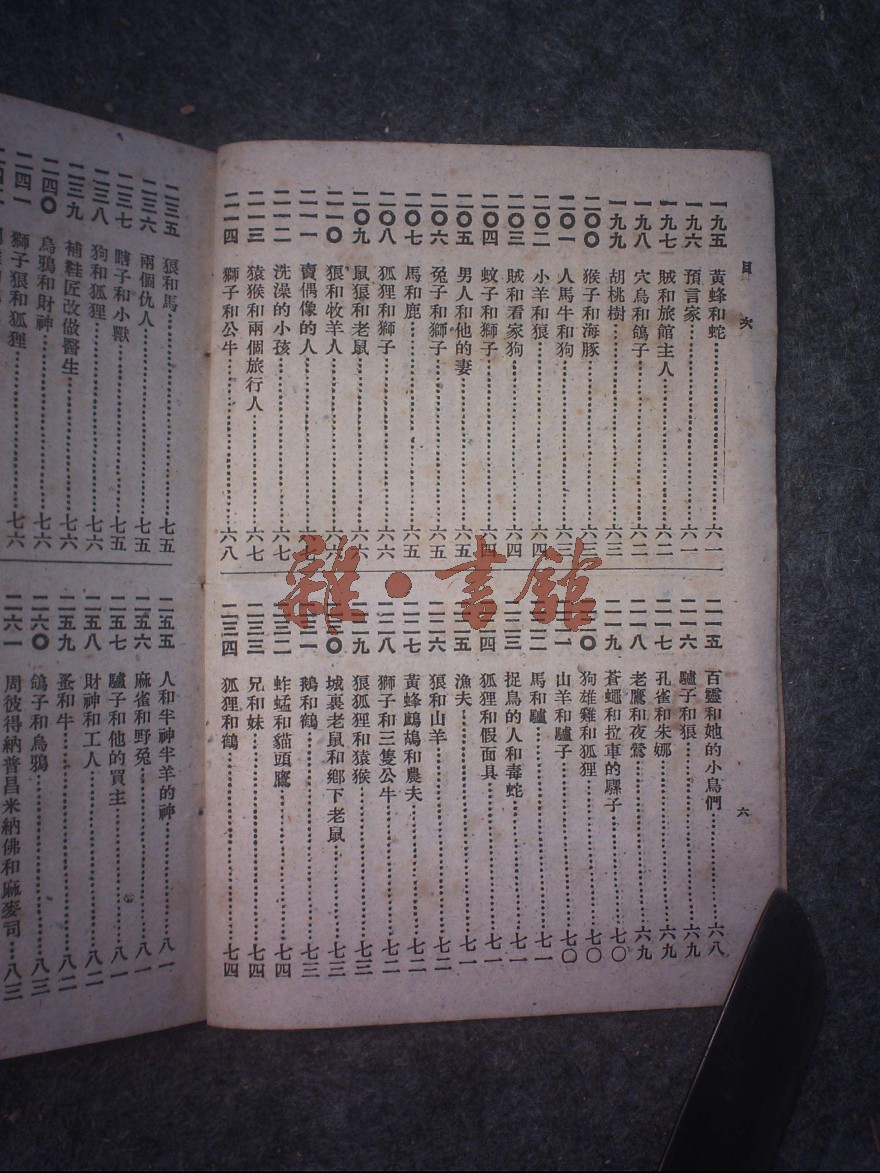 目次
一九五 黃蜂和蛇 六一
一九六 預言家 六一
一九七 賊和旅館主人 六二
一九八 穴鳥和鴿子 六二
一九九 胡桃樹 六三
二〇〇 猴子和海豚 六三
二〇一 人馬牛和狗 六三
二〇二 小羊和狼 六四
二〇三 賊和看家狗 六四
二〇四 蚊子和獅子 六四
二〇五 男人和他的妻 六五
二〇六 兔子和獅子 六五
二〇七 馬和鹿 六五
二〇八 狐狸和獅子 六六
二〇九 鼠狼和老鼠 六六
二一〇 狼和牧羊人 六六
二一一 賣偶像的人 六七
二一二 洗澡的小孩 六七
二一三 猿猴和兩個旅行人 六七
二一四 獅子和公牛 六八
二一五 百靈和她的小鳥們 六八
二一六 驢子和狼 六九
二一七 孔雀和朱娜 六九
二一八 老鷹和夜鶯 六九
二一九 蒼蠅和拉車的騾子 七〇
二二〇 狗雄雞和狐狸 七〇
二二一 山羊和驢子 七〇
二二二 馬和驢 七一
二二三 捉鳥的人和毒蛇 七一
二二四 狐狸和假面具 七一
二二五 漁夫 七一
二二六 狼和山羊 七二
二二七 黃蜂鷓鴣和農夫 七二
二二八 獅子和三隻公牛 七二
二二九 狼狐狸和猿猴 七三
二三〇 城裏老鼠和鄉下老鼠 七三
二三一 鵝和鶴 七三
二三二 蚱蜢和貓頭鷹 七四
二三三 兄和妹 七四
二三四 狐狸和鶴 七四
六
二三五 狼和馬 七五
二三六 兩個仇人 七五
二三七 瞎子和小獸 七五
二三八 狗和狐狸 七六
二三九 補鞋匠改做醫生 七六
二四〇 烏鴉和財神 七六
二四一 獅子狼和狐狸 七六
二五五 人和半神半羊的神 八一
二五六 麻雀和野兔 八一
二五七 驢子和他的買主 八一
二五八 財神和工人 八二
二五九 蚤和牛 八二
二六〇 鴿子和烏鴉 八三
二六一 周彼得納普昌米納佛和麻麥司 八三
雜·書館